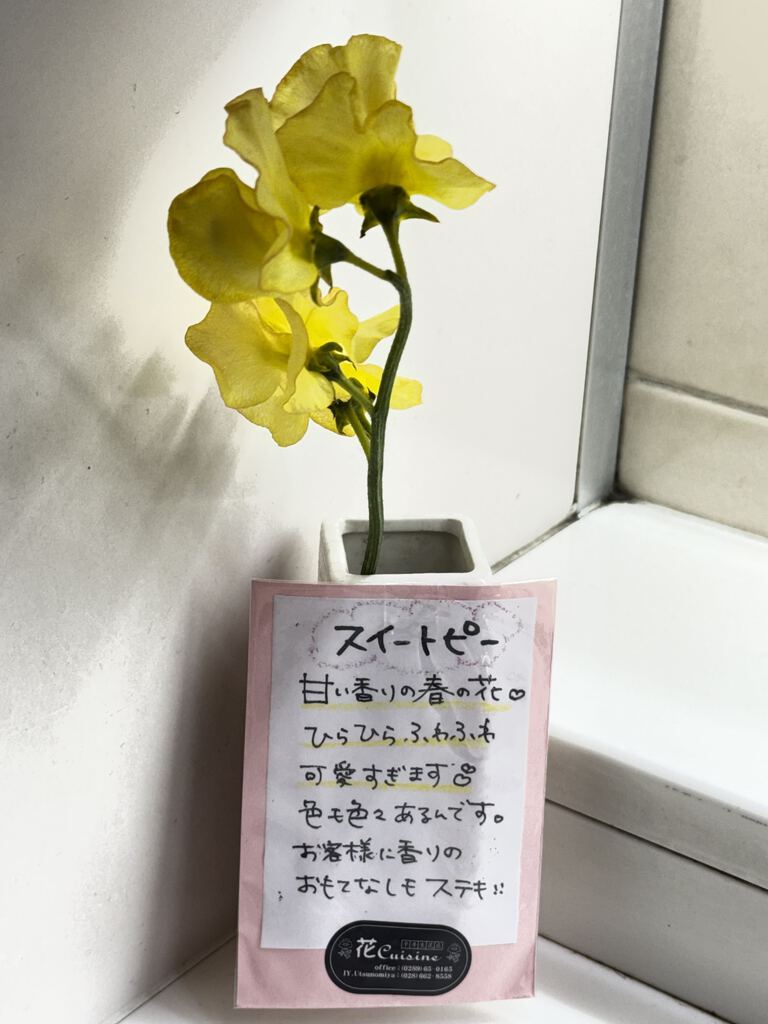 スイートピー
甘い香りの春の花♡
ひらひらふわふわ
可愛すぎます
色も色々あるんです。
お客様に香りの
おもてなしもステキ!!
花Cuisine
office:(0289)65-0165
JY.Utsunomiya:(028)662-8558